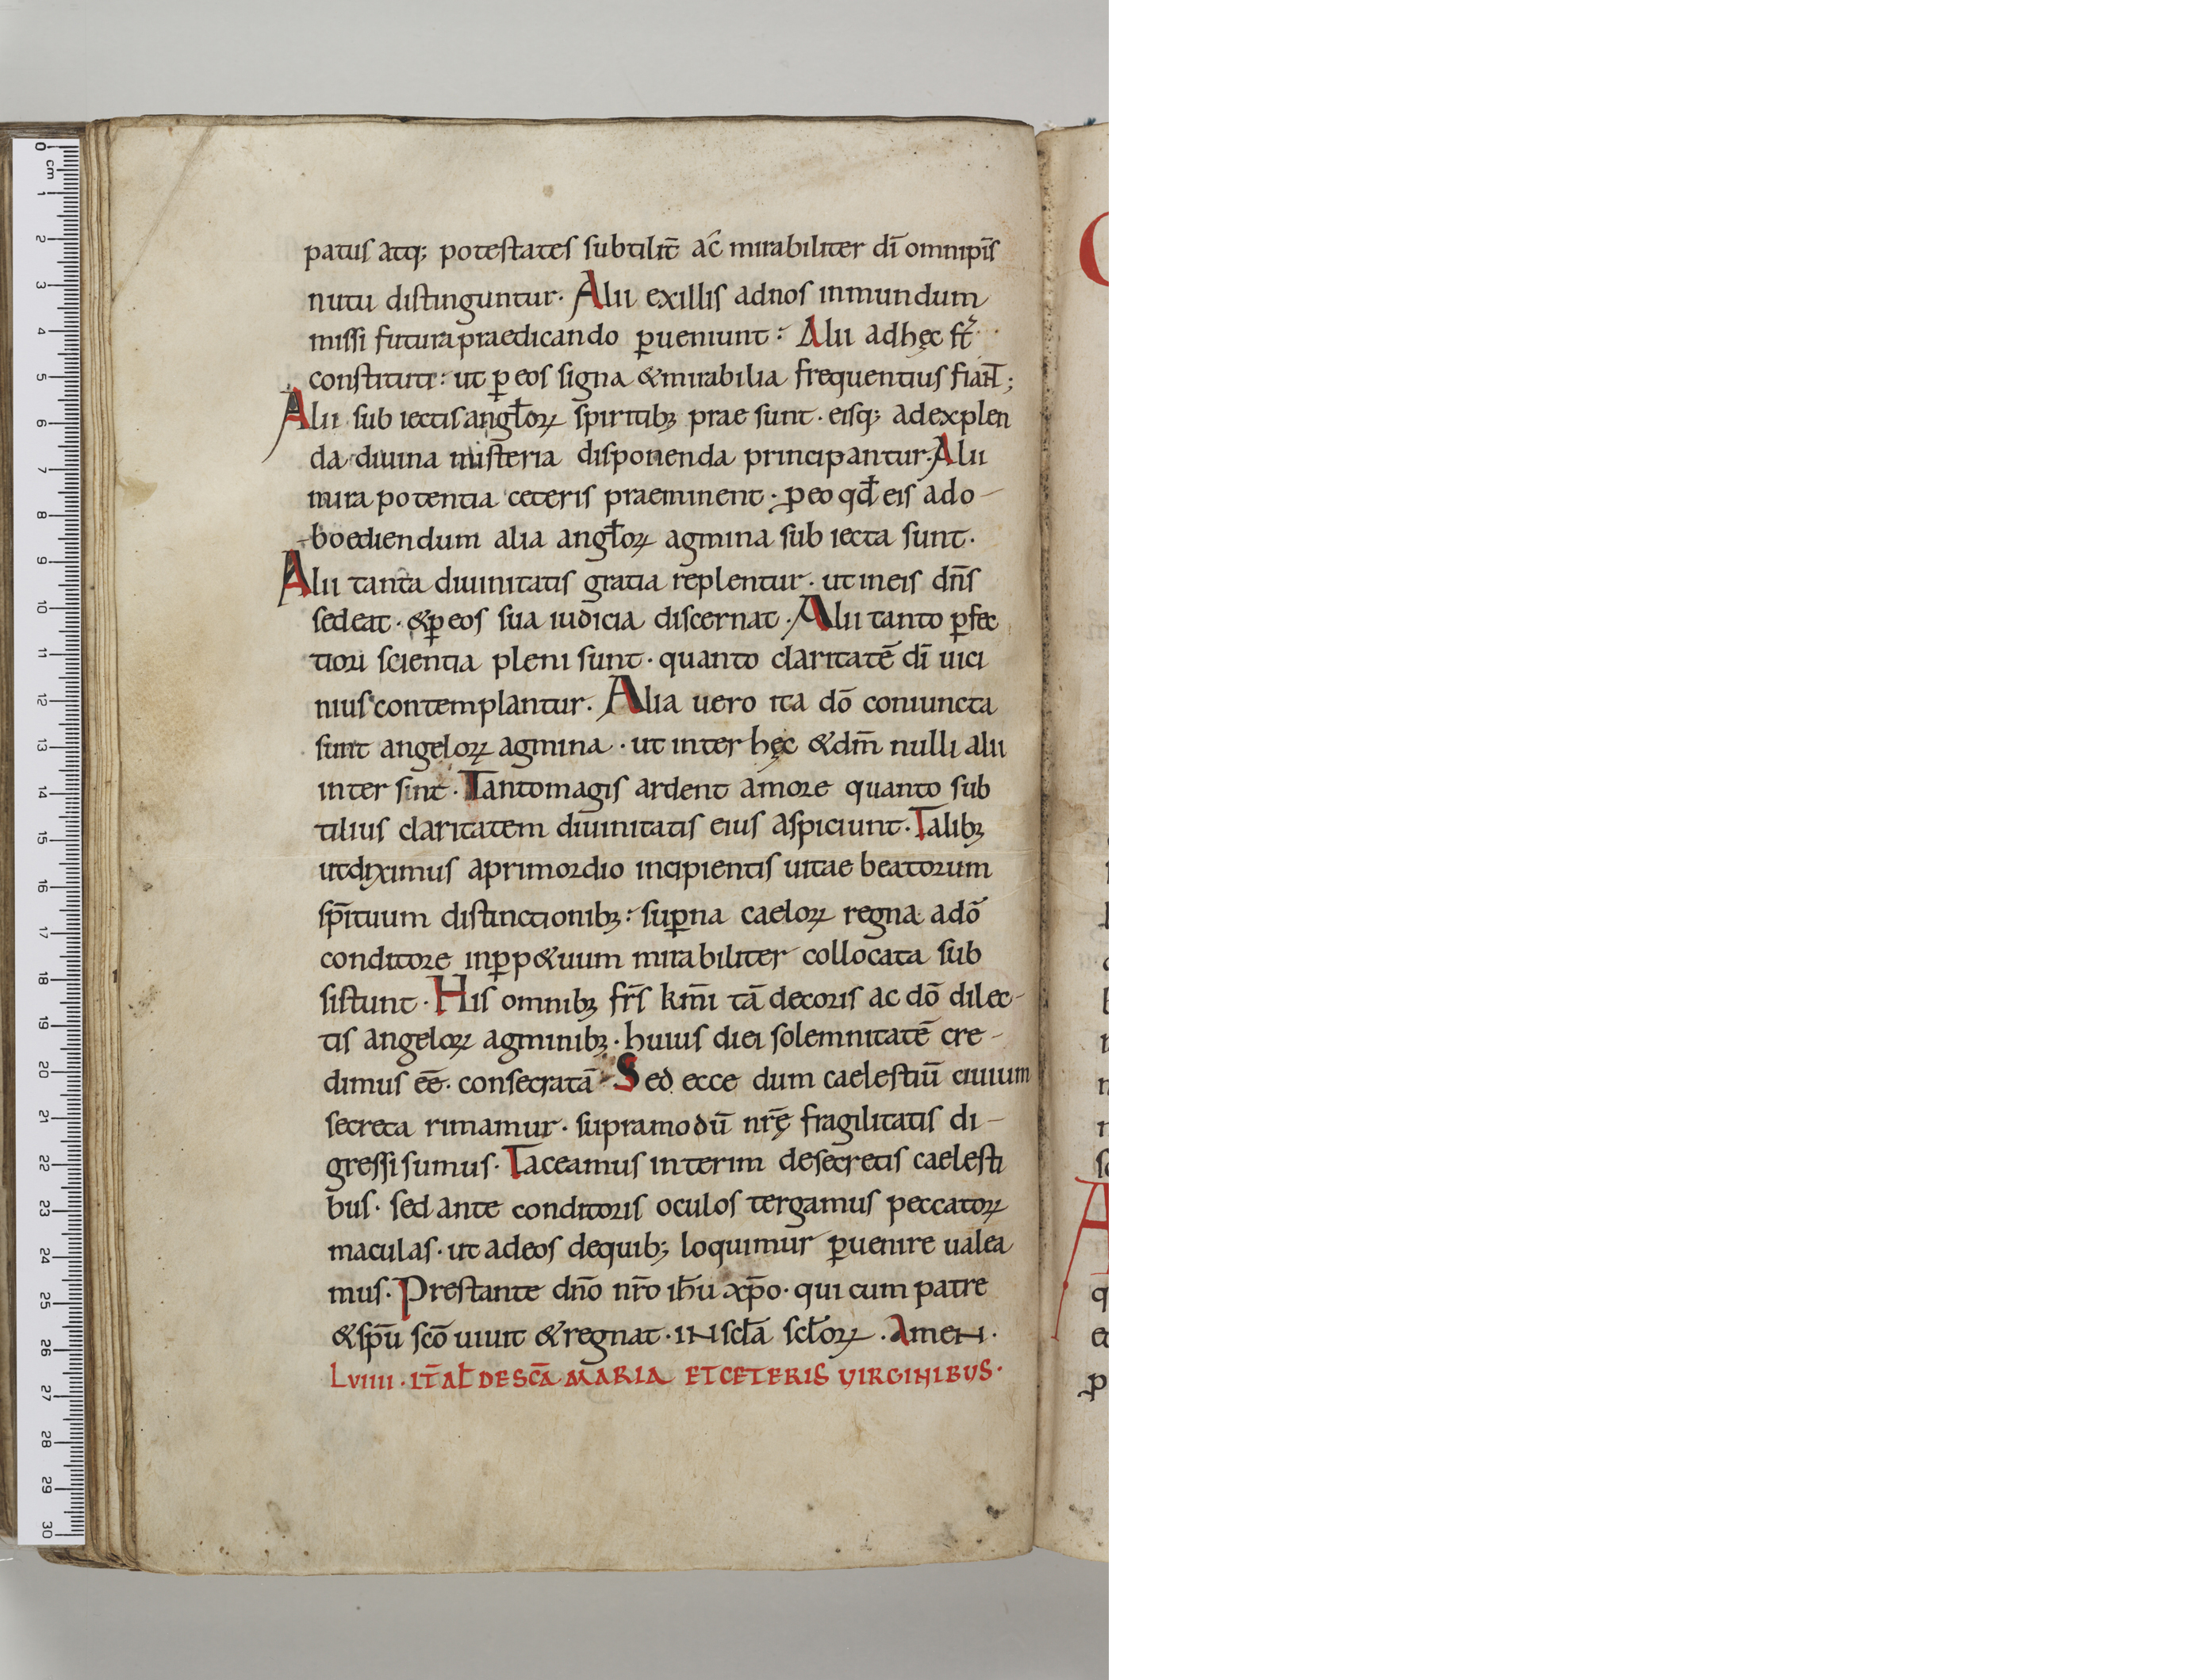 patus atq; potestates subtilit̄ ac̄ mirabiliter dī omnip̄is
nutu distinguntur. Alii exillis adnos inmundum
missi futura praedicando ꝑueniunt: Alii adhęc st̄
constituti: ut ꝑ eos signa &mirabilia frequentius fiaNT;
Alii sub iectis angl̄oꝝ sp̄iritibꝫ prae sunt. eisq; adexplen
da diuina misteria disponenda principantur. Alii
mira potentia ceteris praeminent. ꝓ eo qđ eis ado-
-boediendum alia angl̄oꝝ agmina sub iecta sunt.
Alii tanta diuinitatis gratia replentur. ut ineis dn̄s
sedeat. &ꝑ eos sua iudicia discernat. Alii tanto ꝑfec
tiori scientia pleni sunt. quanto claritatē dī uici
nius contemplantur. Alia uero ita dō coniuncta
sunt angeloꝝ agmina. ut inter hęc &dm̄ nulli alii
inter sint. Tantomagis ardent amore quanto sub
tilius claritatem diuinitatis eius aspiciunt. Talibꝫ
utdiximus aprimordio incipientis uitae beatorum
sp̄irituum distinctionibꝫ: suꝑna caeloꝝ regna adō
conditore inꝑp&uum mirabiliter collocata sub
sistunt. His omnibꝫ fr̄s km̄i tā decoris ac dō dilec-
tis angeloꝝ agminibꝫ. huius diei solemnitatē cre-
dimus eē. consecratā. Sed ecce dum caelestiū ciuium
secreta rimamur. supramodū nr̄ę fragilitatis di-
gressi sumus. Taceamus interim desecretis caelesti
bus. sed ante conditoris oculos tergamus peccatoꝝ
maculas. ut adeos dequib; loquimur ꝑuenire ualea
mus. Prestante dn̄o nr̄o ih̄u xp̄o. qui cum patre
&sp̄u scō uiuit &regnat. IN scl̄a scl̄oꝝ. AmeN.
Lviiii. IT̄ AL̄ DE SCĀ MARIA ET CETERIS VIRGINIBVS.